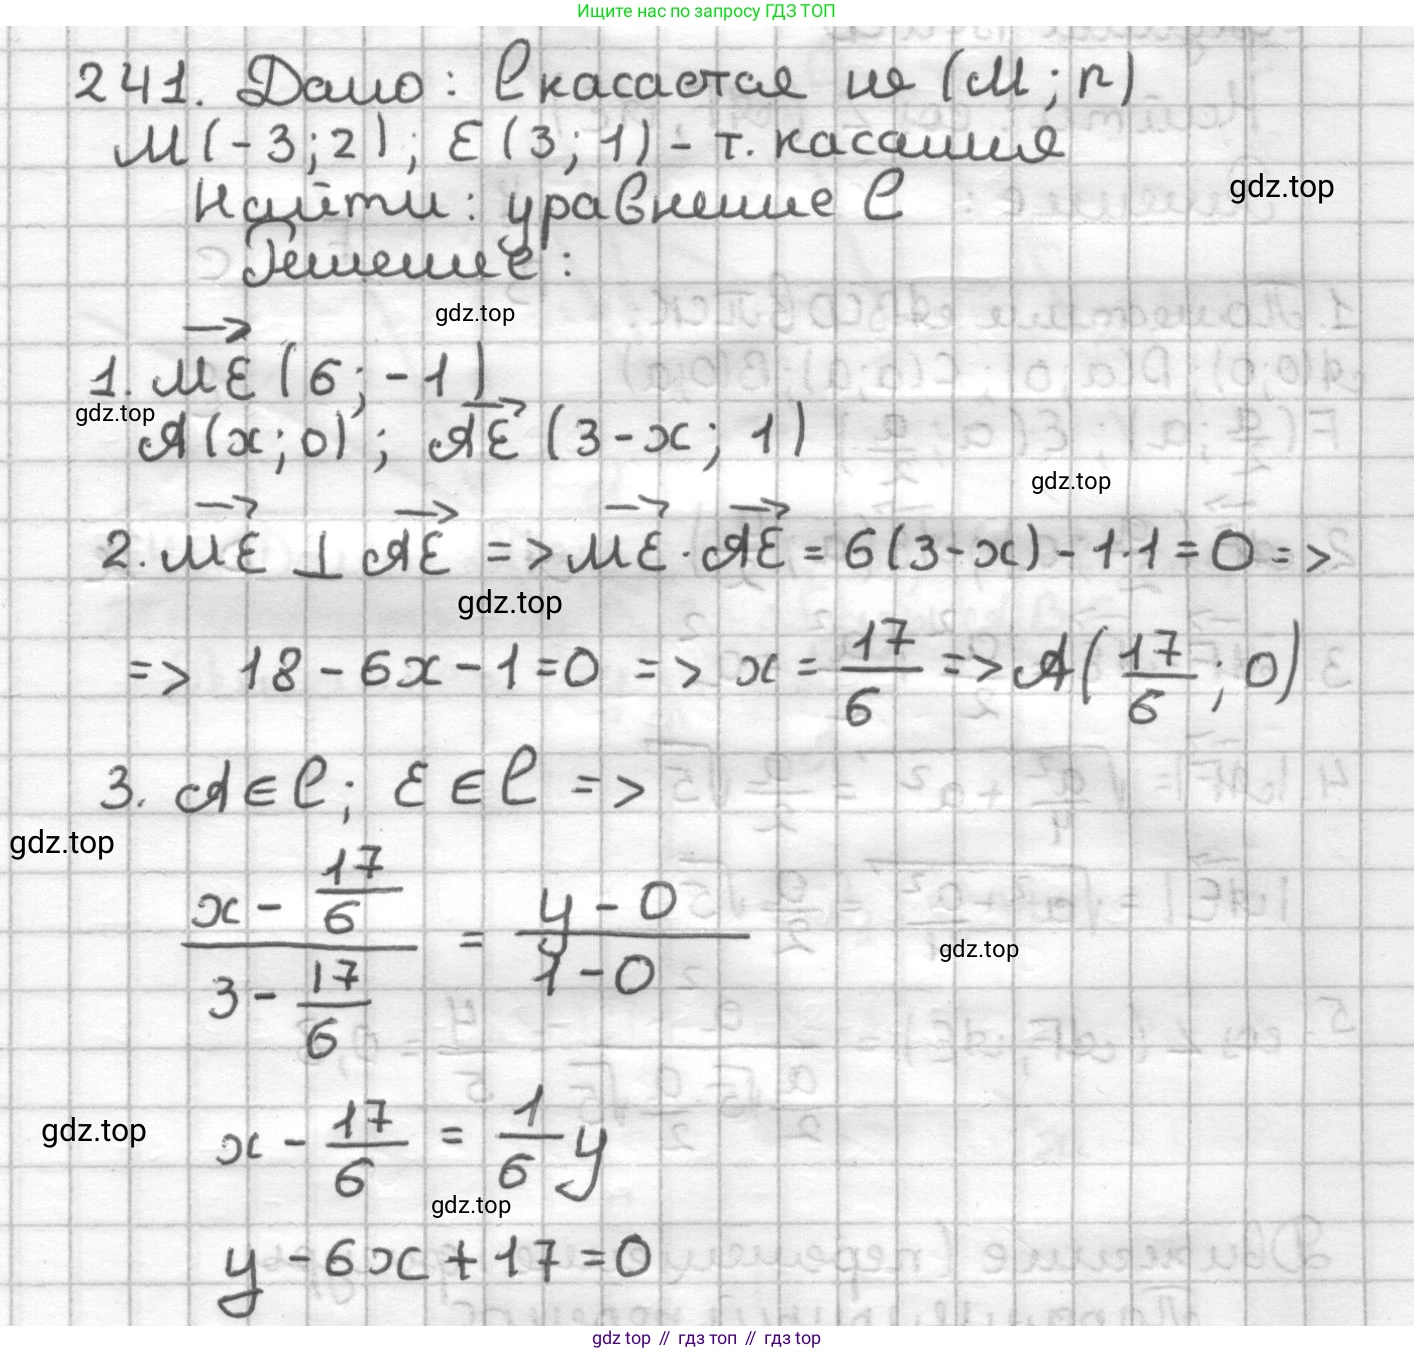 Ищите нас по запросу ГДЗ ТОП
241. Дано: l касается ω (M; r)
M(-3; 2); E(3; 1) - т. касания
Найти: уравнение l
gdz.top
Решение:
gdz.top
1. ME→ (6; -1)
gdz.top
A(x; 0); AE→ (3-x; 1)
gdz.top
2. ME→ ⊥ AE→ => ME→ · AE→ = 6(3-x) - 1·1 = 0 =>
gdz.top
=> 18 - 6x - 1 = 0 => x = 17/6 => A(17/6; 0)
3. A ∈ l; E ∈ l =>
gdz.top
(x - 17/6)/(3 - 17/6) = (y - 0)/(1 - 0)
gdz.top
x - 17/6 = 1/6 y
gdz.top
gdz.top
y - 6x + 17 = 0
gdz top // гдз топ // гдз top